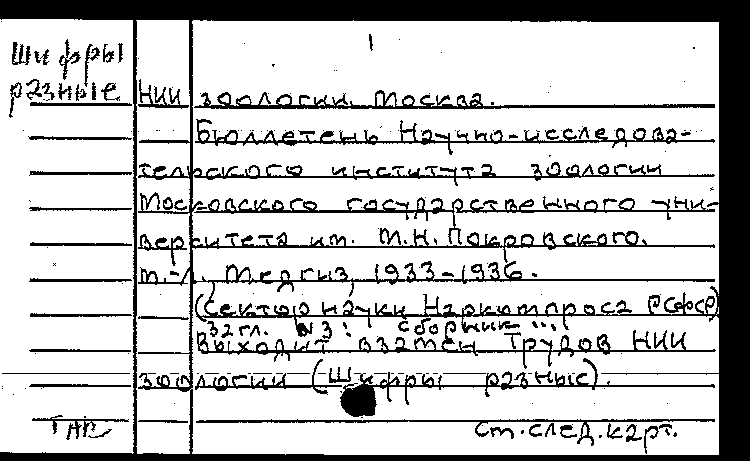 1
Шифры
разные
НИИ зоологии. Москва.
Бюллетень Научно-исследова-
тельского института зоологии
Московского государственного уни-
верситета им. М.Н. Покровского.
М.-Л., Медгиз, 1933-1936.
(Сектор науки Наркомпроса РСФСР)
Загл. N3: Сборник ...
Выходит взамен Трудов НИИ
зоологии (Шифры разные).
См. след. карт.